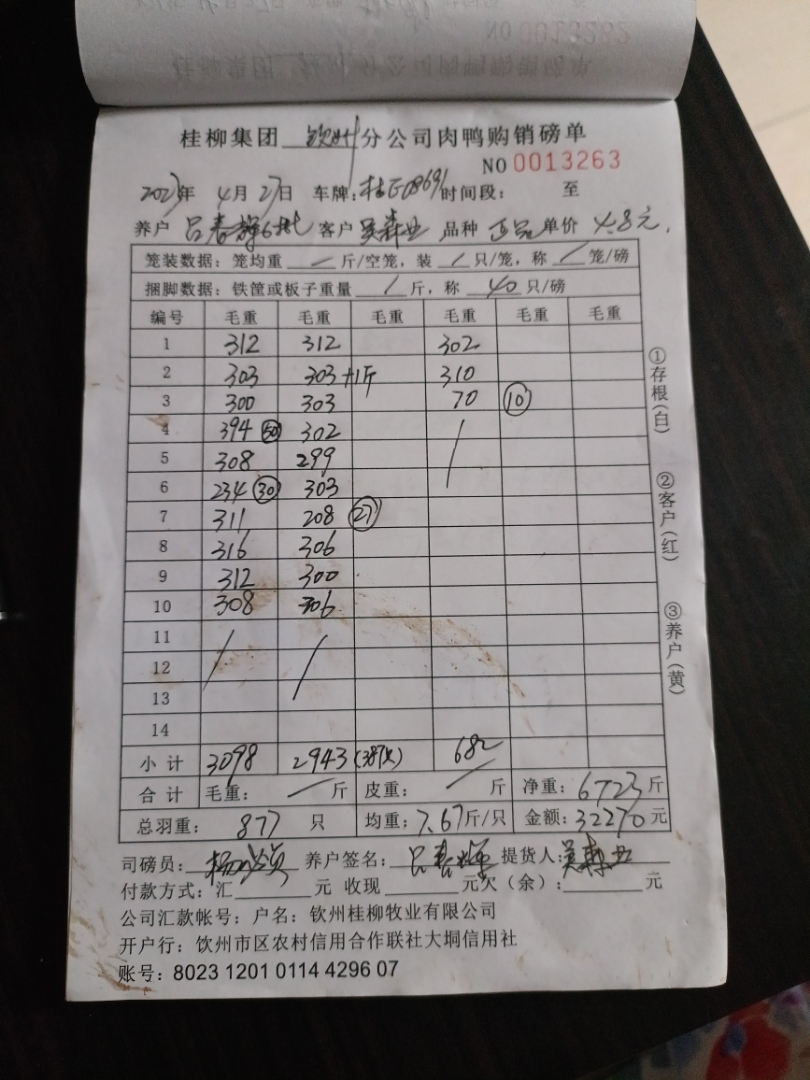 NO 0013262
桂柳集团 钦州 分公司肉鸭购销磅单
NO 0013263
2023年 4月27日 车牌: 时间段: 至
养户 吕春辉6批 客户 吴森业 品种 正品 单价 4.8元.
笼装数据:笼均重 / 斤/空笼,装 / 只/笼,称 / 笼/磅
捆脚数据:铁筐或板子重量 / 斤,称 40 只/磅
编号 毛重 毛重 毛重 毛重 毛重 毛重
1 312 312 302
2 303 303+1斤 310
3 300 303 70 (10)
4 394 (50) 302 /
5 308 299
6 234 (30) 303
7 311 208 (27)
8 316 306
9 312 300
10 308 306
11 / /
12
13
14
小计 3098 2943 (387只) 682
合计 毛重: / 斤 皮重: / 斤 净重: 6723斤
总羽重: 877 只 均重: 7.67斤/只 金额: 32270元
司磅员: 养户签名: 吕春辉 提货人: 吴森业
付款方式:汇 元 收现 元欠(余): 元
公司汇款帐号:户名:钦州桂柳牧业有限公司
开户行:钦州市区农村信用合作联社大垌信用社
账号:8023 1201 0114 4296 07
①存根(白)
②客户(红)
③养户(黄)